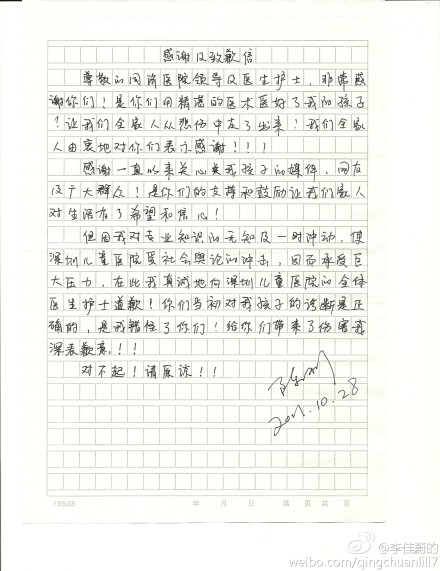 感谢及致歉信
尊敬的同济医院领导及医生护士，非常感
谢你们！是你们用精湛的医术医好了我的孩子
！让我们全家人从悲伤中走了出来！我们全家
人由衷地对你们表示感谢！！！
感谢一直以来关心关我孩子的媒体，网友
及广大群众！是你们的支持和鼓励让我们家人
对生活有了希望和信心！
但因我对专业知识的无知及一时冲动，使
深圳儿童医院受社会舆论的冲击，因而承受巨
大压力，在此我真诚地向深圳儿童医院的全体
医生护士道歉！你们当初对我孩子的诊断是正
确的，是我错怪了你们！给你们带来了伤害我
深表歉意！！！
对不起！请原谅！！
2011.10.28
FB503 年 月 日 第 页 共 页
@李佳蔚的
weibo.com/qingchuanlili7